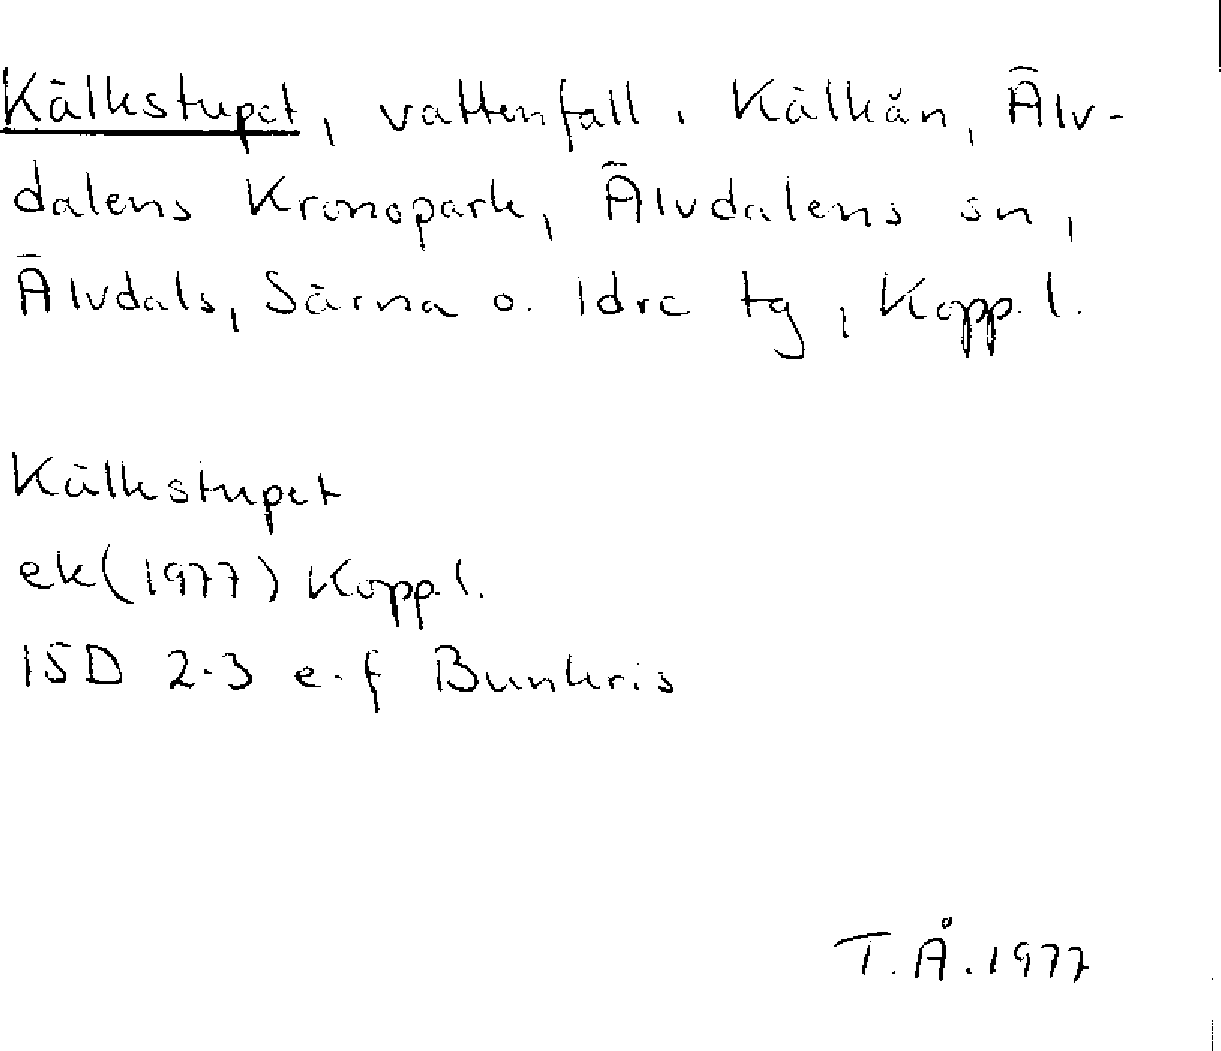 Kälkstupet, vattenfall i Kälkån, Älv-
dalens Kronopark, Älvdalens sn,
Älvdals, Särna o. Idre tg, Kopp. l.
Kälkstupet
ek (1977) Kopp. l.
15D 2-3 e-f Bunkris
T.Å. 1977